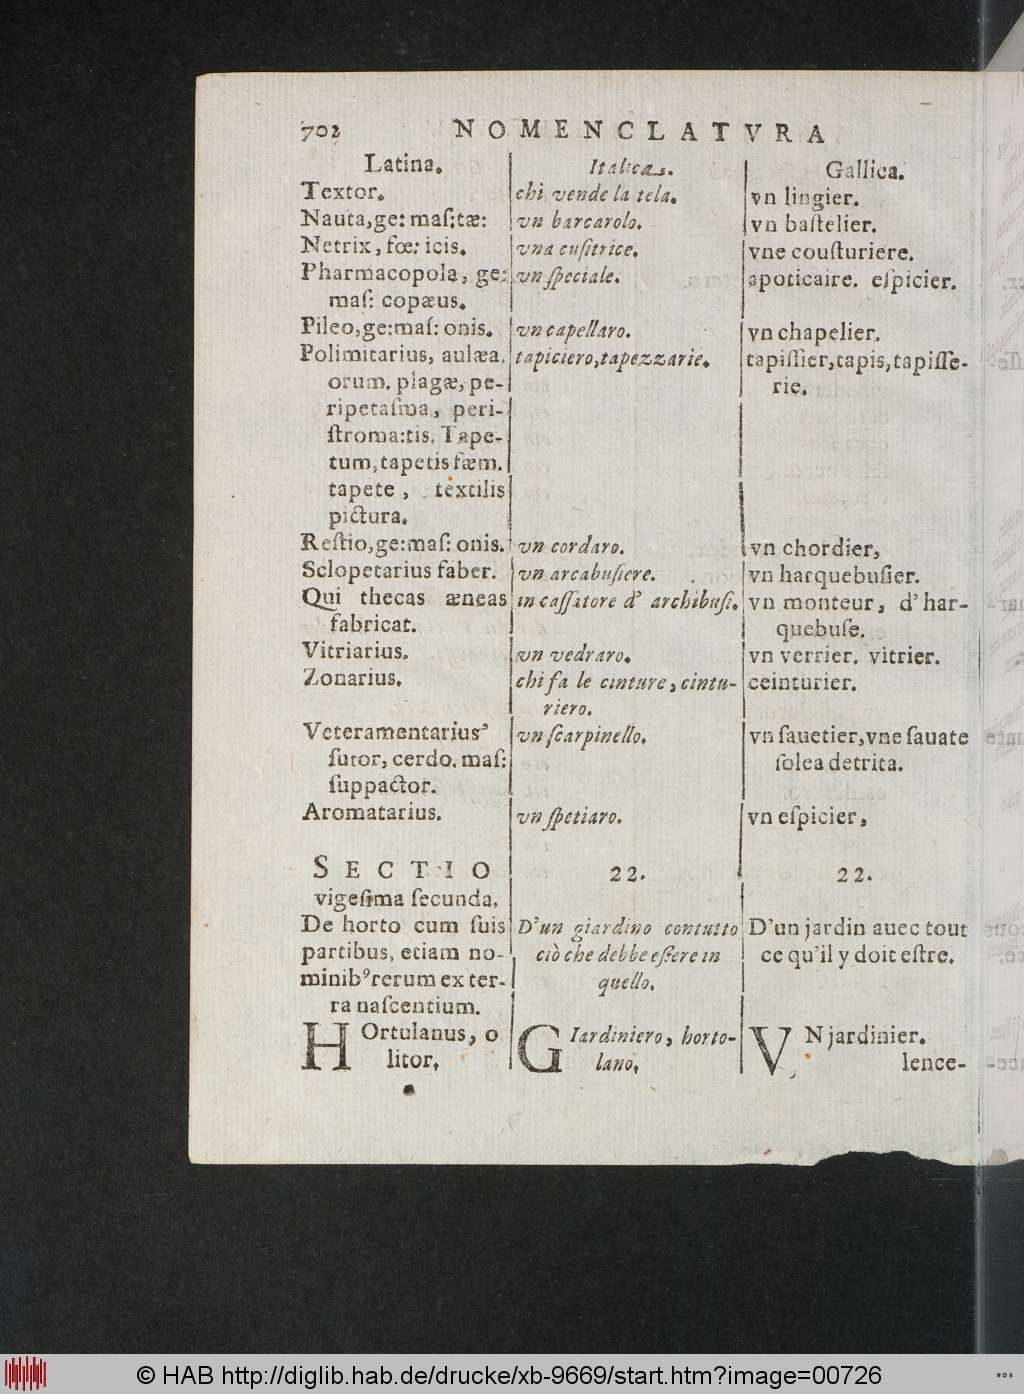 702 NOMENCLATVRA
Latina.
Textor.
Nauta,ge: maſ:tæ:
Netrix, fœ: icis.
Pharmacopola, ge:
maſ: copæus.
Pileo,ge:maſ: onis.
Polimitarius, aulæa,
orum. plagæ, pe-
ripetaſma, peri-
ſtroma:tis. Tape-
tum, tapetis fæm.
tapete, textilis
pictura.
Reſtio,ge:maſ: onis.
Sclopetarius faber.
Qui thecas æneas
fabricat.
Vitriarius.
Zonarius.
Veteramentarius’
ſutor, cerdo. maſ:
ſuppactor.
Aromatarius.
SECTIO
vigeſima ſecunda.
De horto cum ſuis
partibus, etiam no-
minibꝰ rerum ex ter-
ra naſcentium.
HOrtulanus, o
litor,
Italica.
chi vende la tela.
vn barcarolo.
vna cuſitrice.
vn ſpeciale.
vn capellaro.
tapiciero, tapezzarie.
vn cordaro.
vn arcabuſiere.
incaſſatore d’ archibuſi.
vn vedraro.
chi fa le cinture, cintu-
riero.
vn ſcarpinello.
vn ſpetiaro.
22.
D’un giardino contutto
ciò che debbe eſſere in
quello.
GIardiniero, horto-
lano,
Gallica.
vn lingier.
vn baſtelier.
vne couſturiere.
apoticaire. eſpicier.
vn chapelier.
tapiſſier, tapis, tapiſſe-
rie.
vn chordier,
vn harquebuſier.
vn monteur, d’ har-
quebuſe.
vn verrier. vitrier.
ceinturier.
vn ſauetier, vne ſauate
ſolea detrita.
vn eſpicier,
22.
D’un jardin auec tout
ce qu’il y doit eſtre.
VN jardinier.
lence-
© HAB http://diglib.hab.de/drucke/xb-9669/start.htm?image=00726